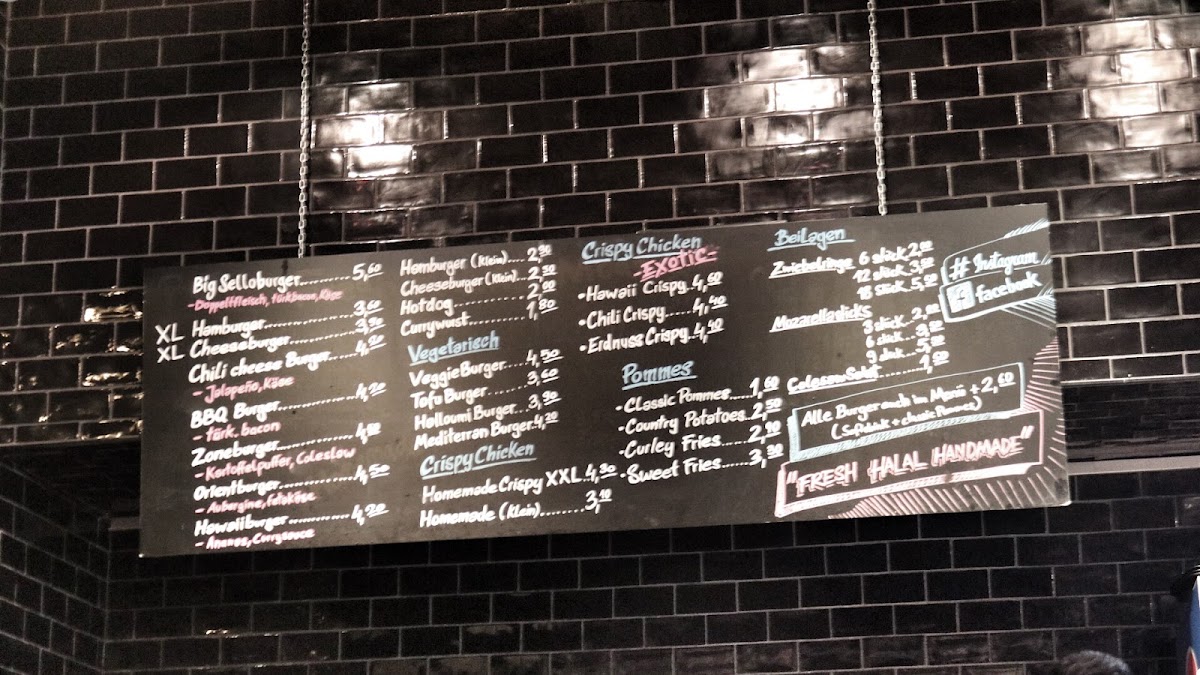 Big Selloburger.........5,60
-Doppelfleisch, türkbacon, Käse
XL Hamburger............3,60
XL Cheeseburger..........3,90
Chili cheese Burger.....4,20
- Jalapeño, Käse
BBQ Burger............4,20
- türk. bacon
Zoneburger............4,60
- Kartoffelpuffer, Coleslaw
Orientburger..........4,50
- Aubergine, fetakäse
Hawaiiburger............4,20
- Ananas, Currysauce
Hamburger (klein)....2,30
Cheeseburger (klein)...2,50
Hotdog...........2,00
Currywurst........1,80
Vegetarisch
Veggie Burger....4,50
Tofu Burger......3,60
Halloumi Burger...3,90
Mediterran Burger.4,20
Crispy Chicken
Homemade Crispy XXL.4,30
Homemade (klein)........3,10
Crispy Chicken
-Exotic-
•Hawaii Crispy.4,60
•Chili Crispy.....4,40
•Erdnuss Crispy.4,40
Pommes
-Classic Pommes...1,60
-Country Potatoes..2,50
-Curley Fries......2,90
-Sweet Fries......3,90
Beilagen
Zwiebelringe 6 stück 2,00
12 stück 3,50
18 stück 5,50
Mozarellasticks
3 stück...2,00
6 stück...3,50
9 stück...5,50
Coleslaw Salat.......1,50
# Instagram
f facebook
Alle Burger auch im Menü + 2,60
(Softdrink + classic Pommes)
"FRESH HALAL HANDMADE"